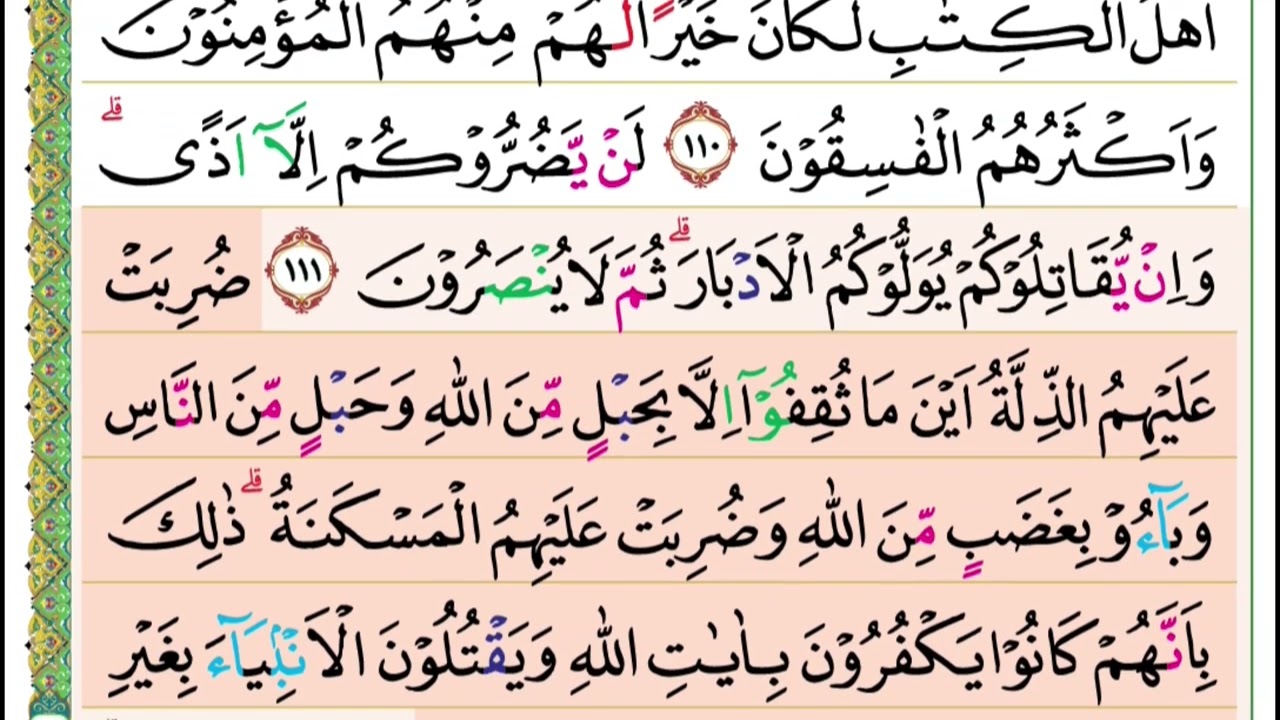 اَهْلُ الْكِتٰبِ لَكَانَ خَيْرًا لَّهُمْ ؕ مِنْهُمُ الْمُؤْمِنُوْنَ
وَاَكْثَرُهُمُ الْفٰسِقُوْنَ ۝١١٠ لَنْ يَّضُرُّوْكُمْ اِلَّاۤ اَذًى ۗ
وَاِنْ يُّقَاتِلُوْكُمْ يُوَلُّوْكُمُ الْاَدْبَارَ ۗ ثُمَّ لَا يُنْصَرُوْنَ ۝١١١ ضُرِبَتْ
عَلَيْهِمُ الذِّلَّةُ اَيْنَ مَا ثُقِفُوْۤا اِلَّا بِحَبْلٍ مِّنَ اللّٰهِ وَحَبْلٍ مِّنَ النَّاسِ
وَبَاۤءُوْ بِغَضَبٍ مِّنَ اللّٰهِ وَضُرِبَتْ عَلَيْهِمُ الْمَسْكَنَةُ ۗ ذٰلِكَ
بِاَنَّهُمْ كَانُوْا يَكْفُرُوْنَ بِاٰيٰتِ اللّٰهِ وَيَقْتُلُوْنَ الْاَنْۢبِيَاۤءَ بِغَيْرِ